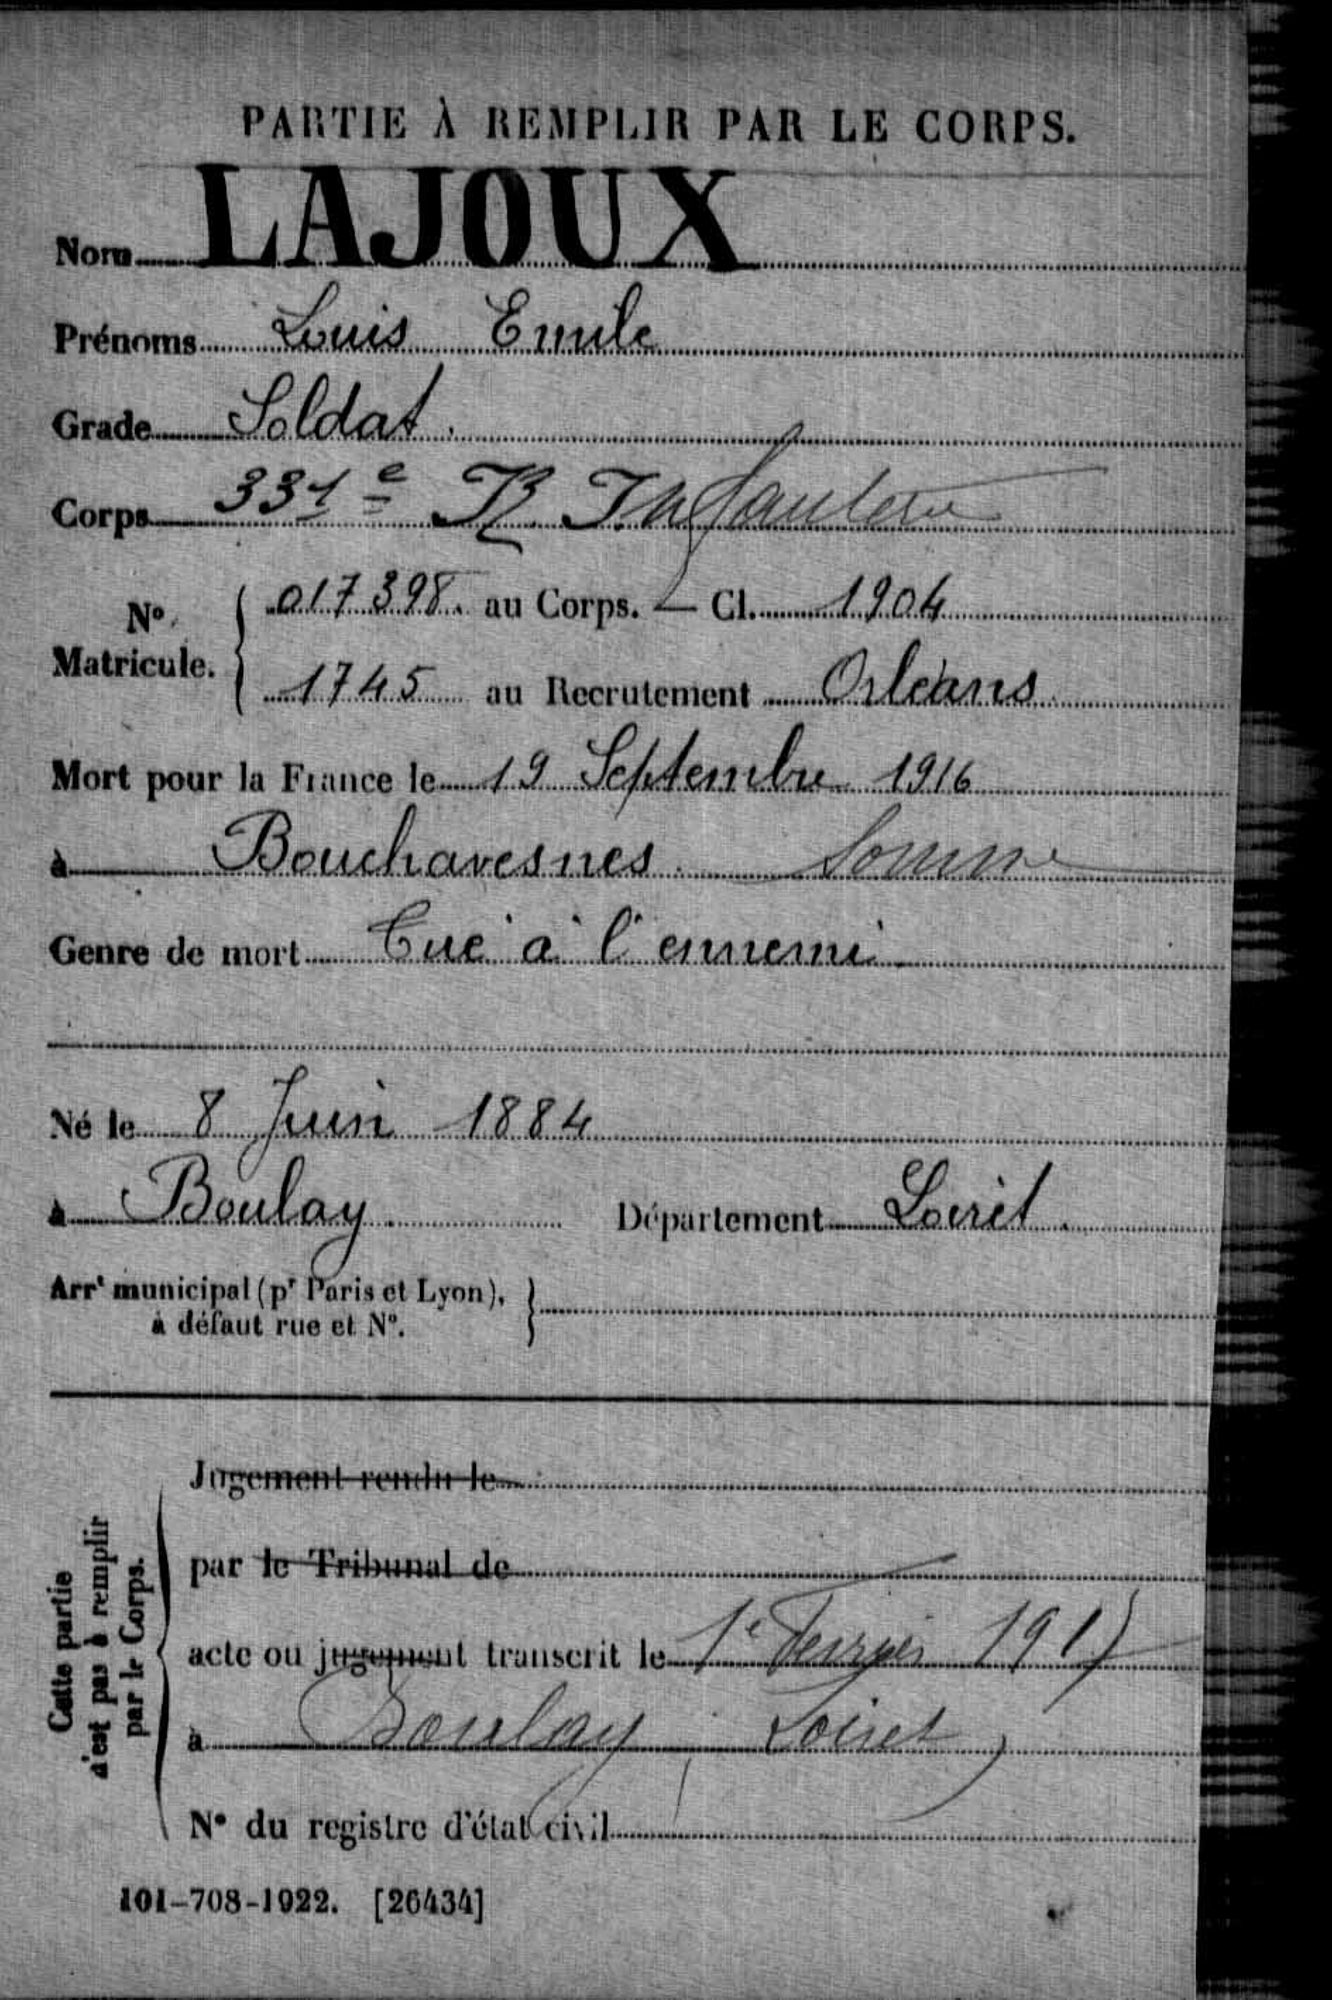 PARTIE À REMPLIR PAR LE CORPS.
Nom LAJOUX
Prénoms Louis Emile
Grade Soldat.
Corps 331e R Infanterie
N° Matricule. { 017398. au Corps. — Cl. 1904
1745 au Recrutement Orléans
Mort pour la France le 19 Septembre 1916
à Bouchavesnes Somme
Genre de mort Tué à l'ennemi
Né le 8 Juin 1884
à Boulay Département Loiret.
Arrt municipal (pr Paris et Lyon), à défaut rue et N°. }
Cette partie n'est pas à remplir par le Corps.
Jugement rendu le
par le Tribunal de
acte ou jugement transcrit le 1e Fevrier 1917
à Boulay Loiret
N° du registre d'état civil
101-708-1922. [26434]